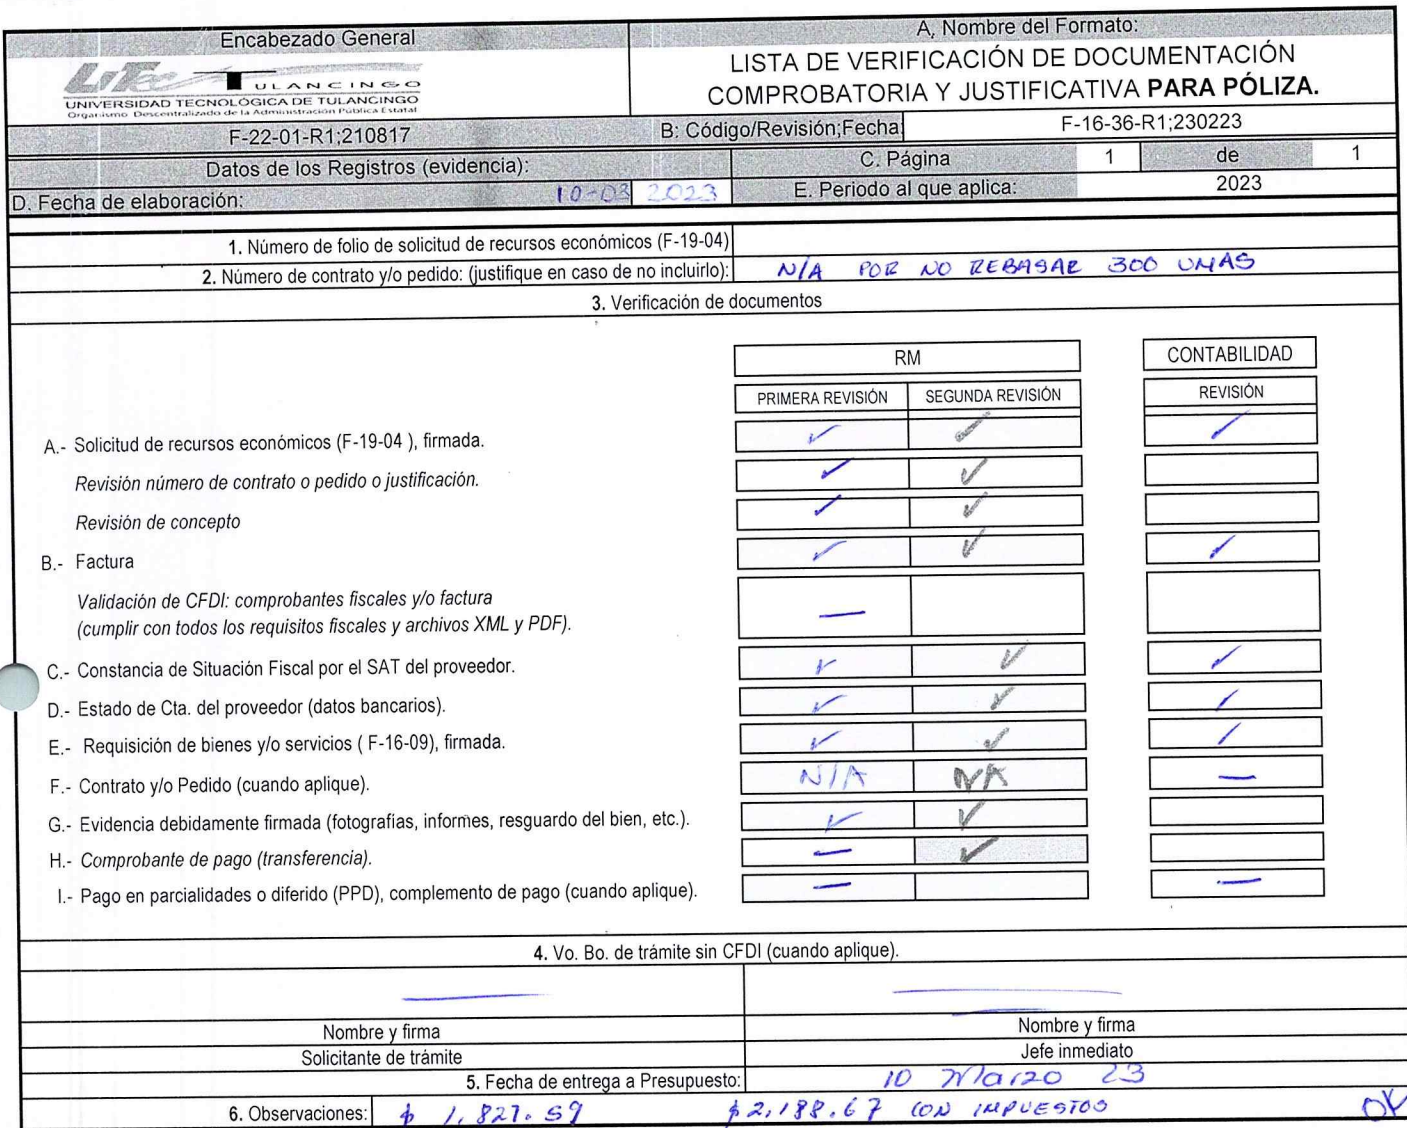 Encabezado General
A, Nombre del Formato:
UTec TULANCINGO
UNIVERSIDAD TECNOLÓGICA DE TULANCINGO
Organismo Descentralizado de la Administración Pública Estatal
LISTA DE VERIFICACIÓN DE DOCUMENTACIÓN
COMPROBATORIA Y JUSTIFICATIVA PARA PÓLIZA.
F-22-01-R1;210817
B: Código/Revisión;Fecha:
F-16-36-R1;230223
Datos de los Registros (evidencia):
C. Página 1 de 1
D. Fecha de elaboración: 10-03 2023
E. Periodo al que aplica: 2023
1. Número de folio de solicitud de recursos económicos (F-19-04)
2. Número de contrato y/o pedido: (justifique en caso de no incluirlo): N/A POR NO REBASAR 300 UMAS
3. Verificación de documentos
RM CONTABILIDAD
PRIMERA REVISIÓN SEGUNDA REVISIÓN REVISIÓN
A.- Solicitud de recursos económicos (F-19-04 ), firmada. ✓ ✓ ✓
Revisión número de contrato o pedido o justificación. ✓ ✓
Revisión de concepto ✓ ✓
B.- Factura ✓ ✓ ✓
Validación de CFDI: comprobantes fiscales y/o factura
(cumplir con todos los requisitos fiscales y archivos XML y PDF). —
C.- Constancia de Situación Fiscal por el SAT del proveedor. ✓ ✓ ✓
D.- Estado de Cta. del proveedor (datos bancarios). ✓ ✓ ✓
E.- Requisición de bienes y/o servicios ( F-16-09), firmada. ✓ ✓ ✓
F.- Contrato y/o Pedido (cuando aplique). N/A NA —
G.- Evidencia debidamente firmada (fotografías, informes, resguardo del bien, etc.). ✓ ✓
H.- Comprobante de pago (transferencia). — ✓
I.- Pago en parcialidades o diferido (PPD), complemento de pago (cuando aplique). — —
4. Vo. Bo. de trámite sin CFDI (cuando aplique).
Nombre y firma Nombre y firma
Solicitante de trámite Jefe inmediato
5. Fecha de entrega a Presupuesto: 10 Marzo 23
6. Observaciones: $ 1,827.59 $2,188.67 CON IMPUESTOS OK